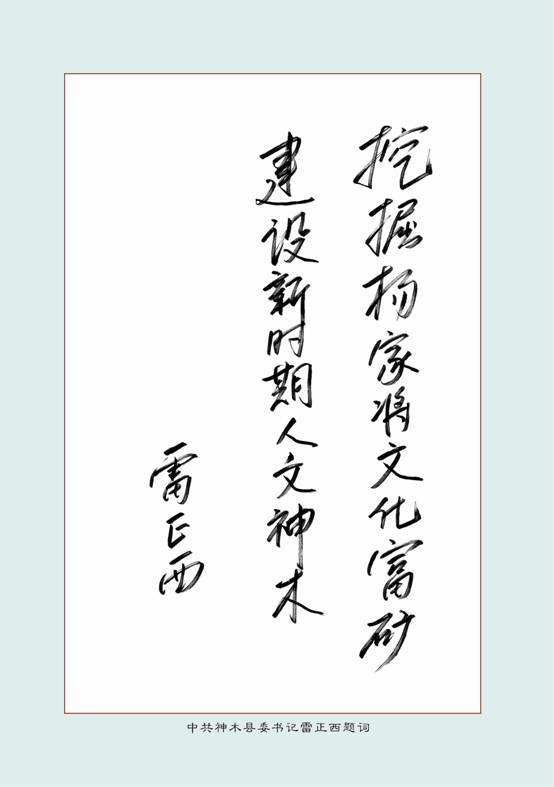 挖掘杨家将文化富矿
建设新时期人文神木
雷正西
中共神木县委书记雷正西题词